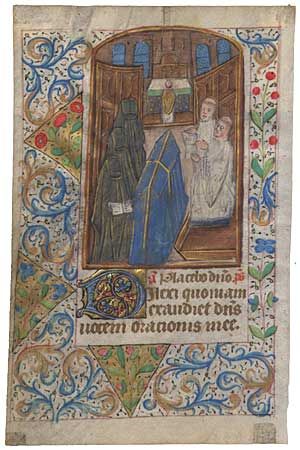 a Placebo dño. ps
Dilexi quoniam
exaudiet deus
vocem orationis mee.